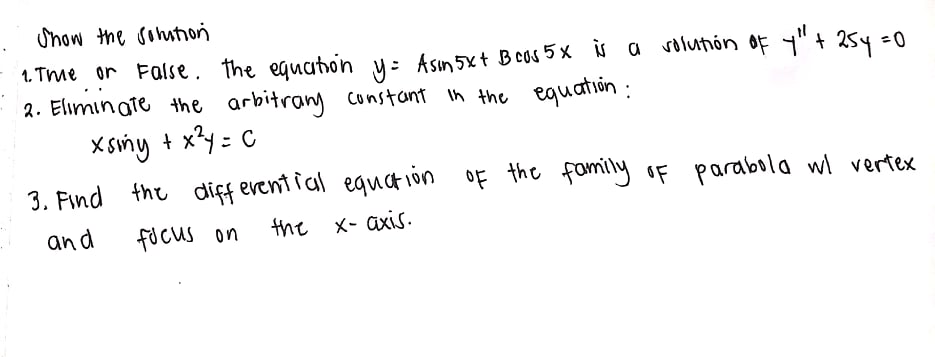 Show the solution
1. True or False. The equation y = Asin5x + Bcos5x is a solution of y" + 25y = 0
2. Eliminate the arbitrary constant in the equation:
x siny + x²y = C
3. Find the differential equation of the family of parabola w/ vertex
and focus on the x-axis.